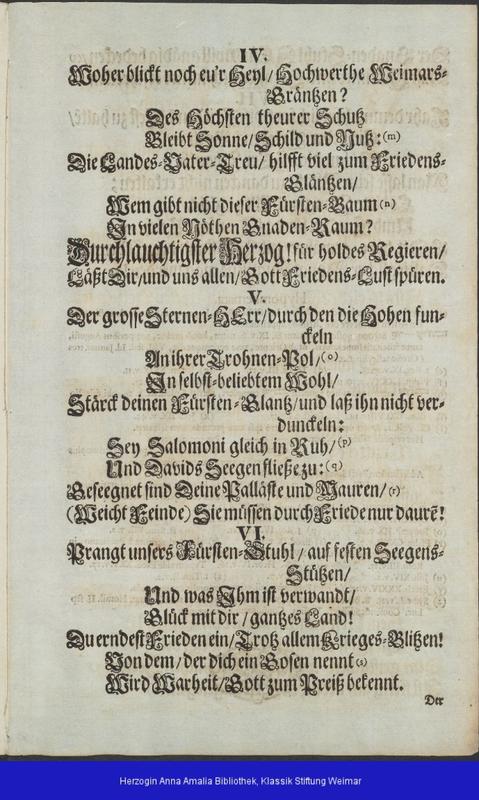 IV.
Woher blickt noch eu'r Heyl/ Hochwerthe Weimars-
Gräntzen?
Des Höchsten theurer Schutz
Bleibt Sonne/ Schild und Nutz: (m)
Die Landes-Vater-Treu/ hilfft viel zum Friedens-
Gläntzen/
Wem gibt nicht dieser Fürsten-Baum (n)
In vielen Nöthen Gnaden-Raum?
Durchlauchtigster Herzog! für holdes Regieren/
Läßt Dir/und uns allen/ Gott Friedens-Lust spüren.
V.
Der grosse Sternen-HErr/durch den die Hohen fun-
ckeln
An ihrer Trohnen-Pol/ (o)
In selbst-beliebtem Wohl/
Stärck deinen Fürsten-Glantz/und laß ihn nicht ver-
dunckeln:
Sey Salomoni gleich in Ruh/ (p)
Und Davids Seegen fließe zu: (q)
Geseegnet sind Deine Palläste und Mauren/ (r)
(Weicht Feinde) Sie müssen durch Friede nur daurē!
VI.
Prangt unsers Fürsten-Stuhl/ auf festen Seegens-
Stützen/
Und was Ihm ist verwandt/
Glück mit dir/ gantzes Land!
Du erndest Frieden ein/ Trotz allem Krieges-Blitzen!
Von dem/ der dich ein Gosen nennt (s)
Wird Warheit/ Gott zum Preiß bekennt.
Der
Herzogin Anna Amalia Bibliothek, Klassik Stiftung Weimar